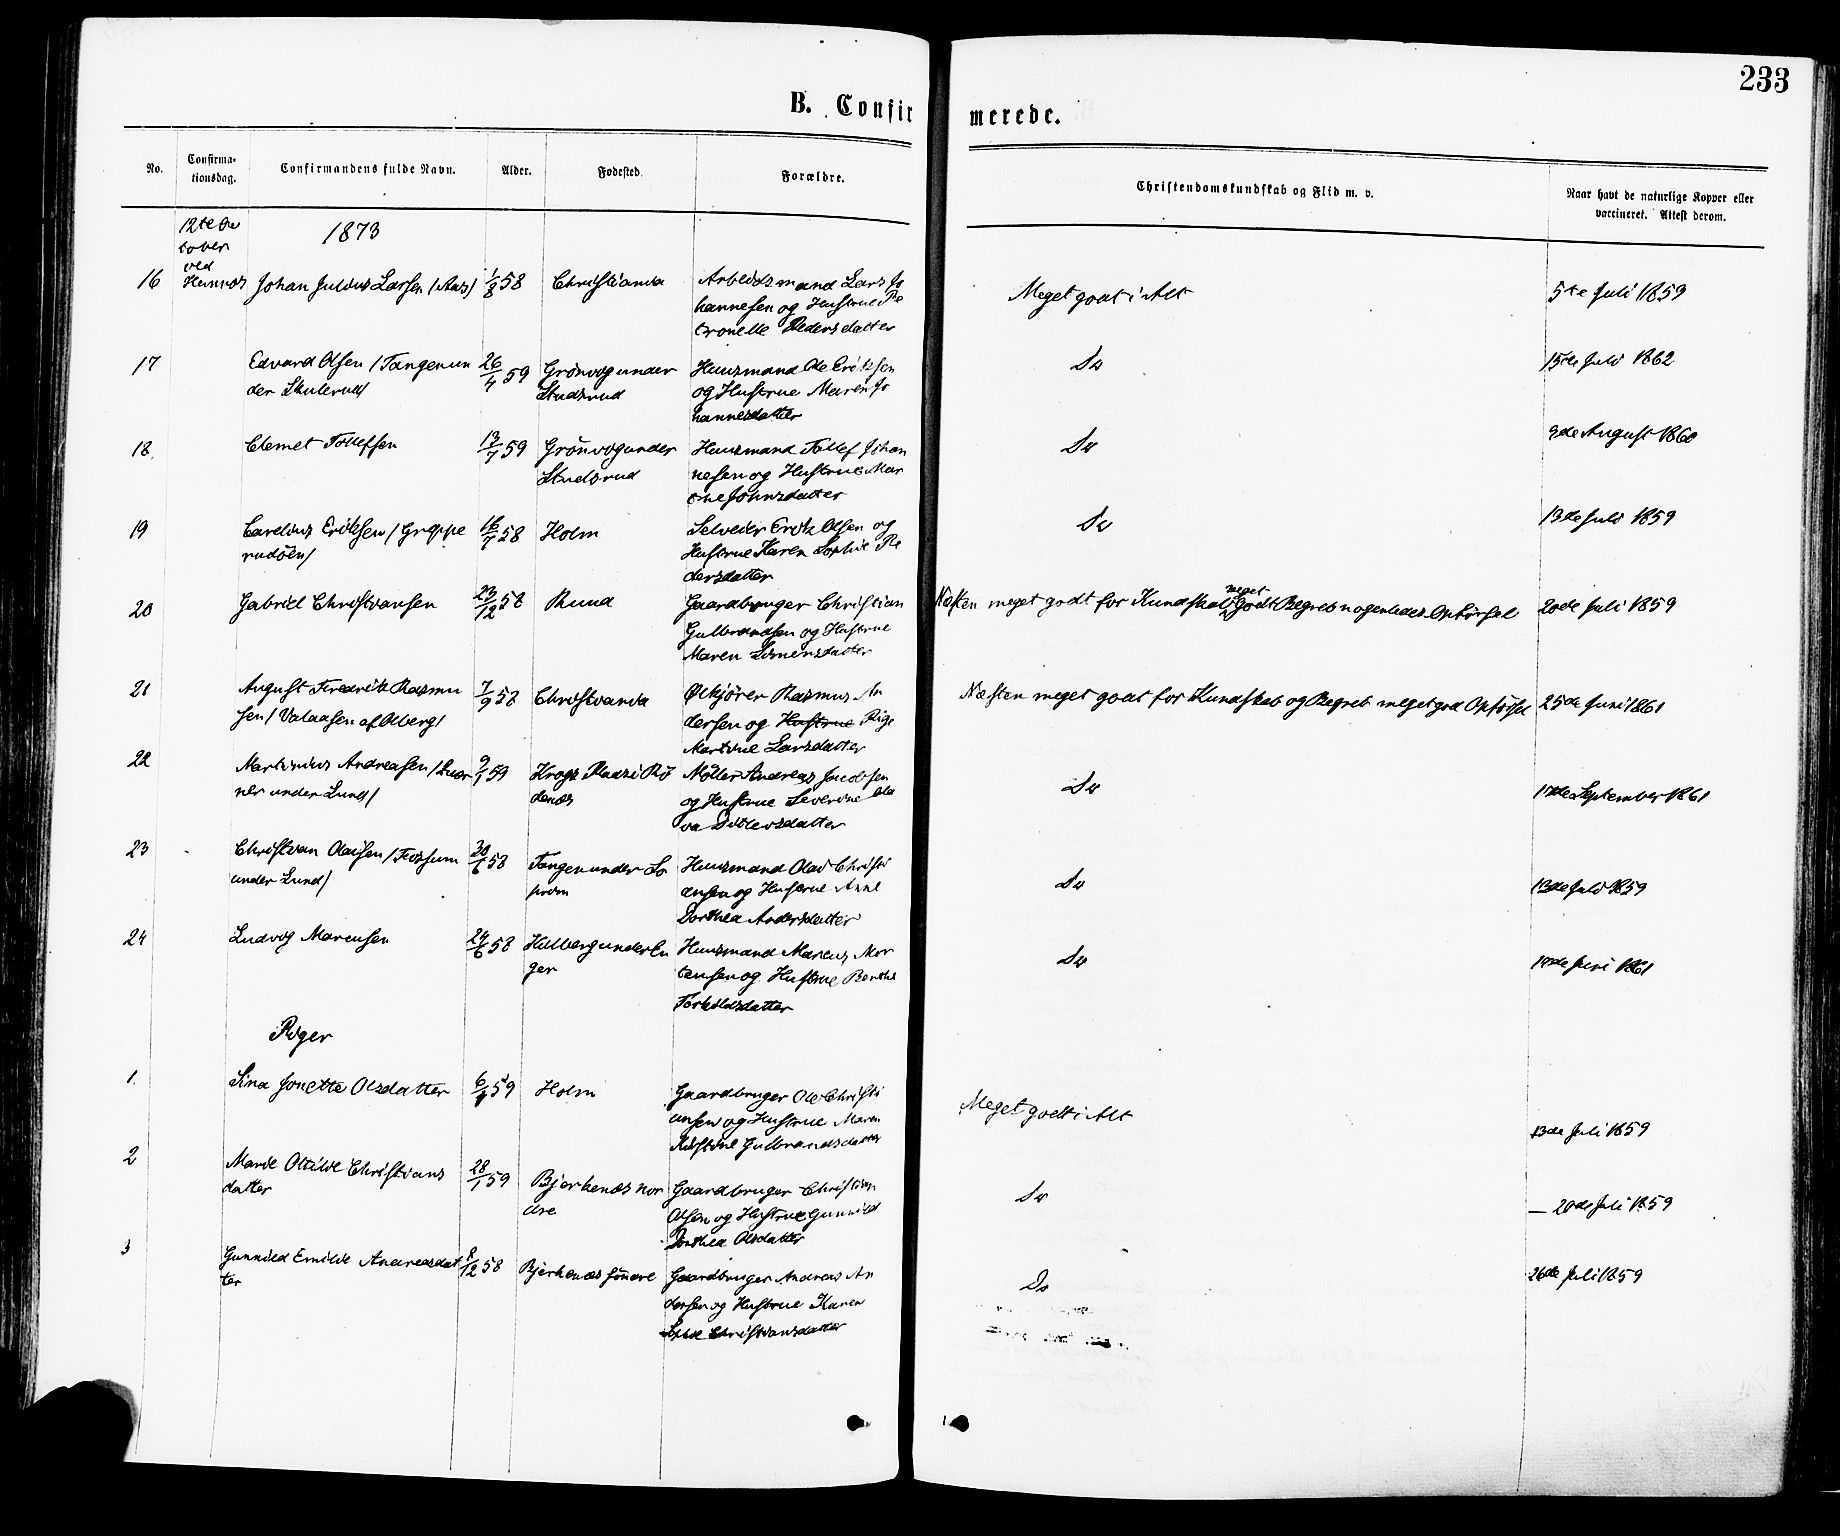 233
B. Confirmerede.
No.
Confirma-
tionsdag.
Confirmandens fulde Navn.
Alder.
Fødested.
Forældre.
Christendomskundskab og Flid m. v.
Naar havt de naturlige Kopper eller
vaccineret. Attest derom.
12te Oc
tober
ved
1873
16 Hemnæs Johan Julius Larsen /Aas/ 1/8 58 Christiania Arbeidsmand Lars Jo
hannesen og Hustrue Pe
tronelle Pedersdatter
Meget godt i Alt
5te Juli 1859
17 Edvard Olsen /Tangen un
der Skulerud/
26/4 59 Grönvog under
Studsrud
Huusmand Ole Eriksen
og Hustrue Maren Jo
hannesdatter
Do
15de Juli 1862
18. Clemet Tollefsen 13/7 59 Grönvog under
Studsrud
Huusmand Tollef Johan
nesen og Hustrue Mar
Do
9de August 1860
19 Carelius Eriksen /Greppe
rudöen/
16/7 58 Holm
Selveier Erik Olsen og
Hustrue Karen Sophie Pe
dersdatter
Do
13de Juli 1859
20 Gabriel Christiansen 23/12 58 Ruud
Gaardbruger Christian
Gulbrandsen og Hustrue
Maren Simensdatter
Næsten meget godt for Kundskab meget godt Begreb nogenledes Opförsel
20de Juli 1859
21 August Fredrik Rasmu
sen / Valaasen af Olberg/
7/9 58 Christiania
Ölkjörer Rasmus An
dersen og Hustrue Pige
Martine Larsdatter
Næsten meget godt for Kundskab og Begreb meget god Opförsel
25de Juni 1861
22 Martinius Andreasen /
under Lund/
9/1 59 Krogs Plads i Rö
denæs
Möller Andreas Jacobsen
og Hustrue Severine Ola
va Ditlevsdatter
Do
September 1861
23 Christian Olausen /Fossum
under Lund/
30/6 58 Tangen under
Huusmand Olaus Christi
ansen og Hustrue Anne
Dorthea Andersdatter
Do
13de Juli 1859
24 Ludvig Marcusen 24/6 58
Huusmand Marcus Mor
tensen og Hustrue Berthe
Torkildsdatter
Do
Juni 1861
Piger
1. Sina Jonette Olsdatter 59 Holm
Gaardbruger Ole Christi
ansen og Hustrue Maren
Kirstine Gulbrandsdatter
Meget godt i Alt
13de Juli 1859
2 Marie Otilie Christians
datter
28/1 59 Bjerkenæs nor
dre
Gaardbruger Christian
Olsen og Hustrue Gunnild
Dorthea Olsdatter
Do
— 20de Juli 1859
3 Gunnild Emilie Andreasdat
ter
8/12 58 Bjerkenæs söndre
Gaardbruger Andreas An
dersen og Hustrue Karen
Sophie Christiansdatter
Do
26de Juli 1859